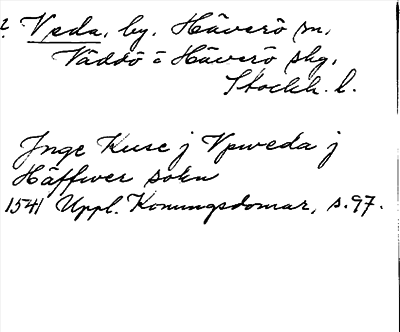 2. Veda, by. Häverö sn,
Väddö o Häverö skg,
Stockh. l.
Inge Kuse j Vpweda j
Häffwer sokn
1541 Uppl. Konungsdomar, s. 97.